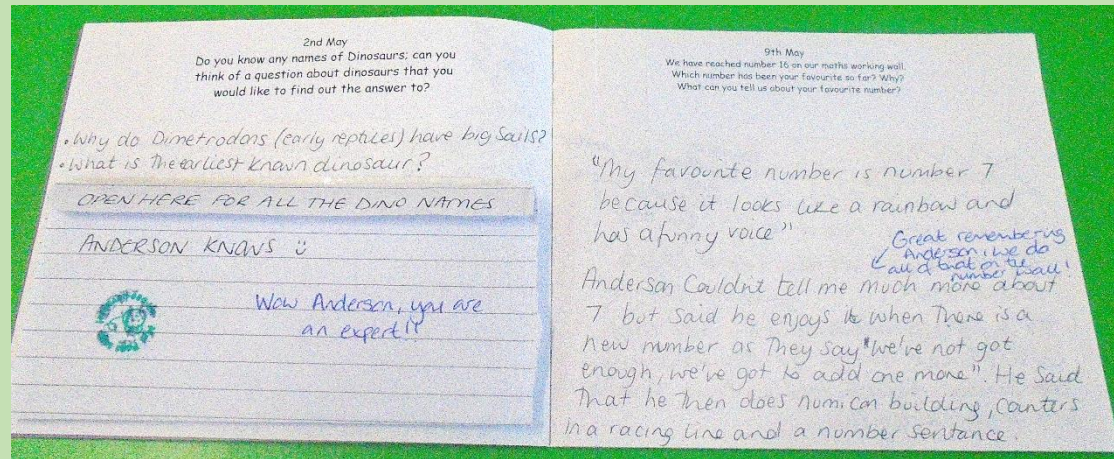 2nd May
Do you know any names of Dinosaurs; can you
think of a question about dinosaurs that you
would like to find out the answer to?
• Why do Dimetrodons (early reptiles) have big Sails?
• What is the earliest known dinosaur?
OPEN HERE FOR ALL THE DINO NAMES
ANDERSON KNOWS
Wow Anderson, you are
an expert!!
9th May
We have reached number 16 on our maths working wall.
Which number has been your favourite so far? Why?
What can you tell us about your favourite number?
"My favourite number is number 7
because it looks like a rainbow and
has a funny voice".
Great remembering
Anderson, we do
all of that on the
number wall!
Anderson Couldnt tell me much more about
7 but said he enjoys it when There is a
new number as They say "we've not got
enough, we've got to add one more". He Said
That he Then does numicon building, counters
in a racing line and a number sentance.